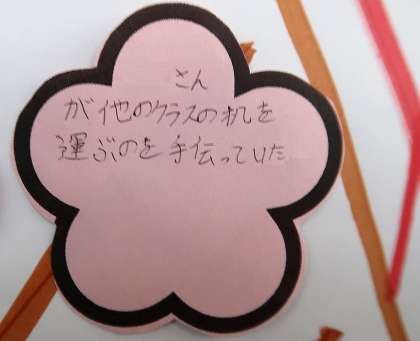 さん
が他のクラスの机を
運ぶのを手伝っていた